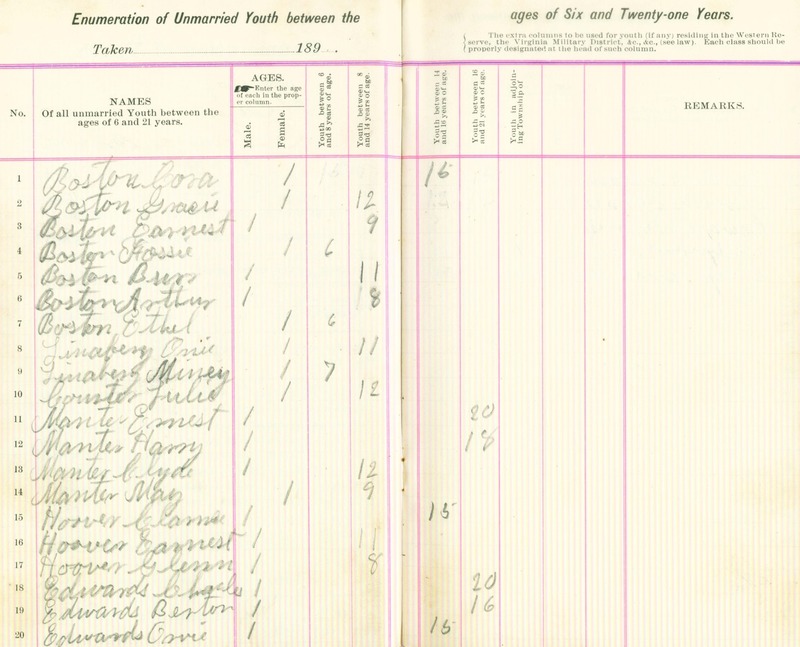 Enumeration of Unmarried Youth between the ages of Six and Twenty-one Years.
Taken 189 .
The extra columns to be used for youth (if any) residing in the Western Re-
serve, the Virginia Military District, &c., &c., (see law). Each class should be
properly designated at the head of such column.
No.
NAMES
Of all unmarried Youth between the
ages of 6 and 21 years.
AGES.
Enter the age
of each in the prop-
er column.
Male.
Female.
Youth between 6
and 8 years of age.
Youth between 8
and 14 years of age.
Youth between 14
and 16 years of age.
Youth between 16
and 21 years of age.
Youth in adjoin-
ing Township of
REMARKS.
1 Boston Cora 1 15
2 Boston Gracie 1 12
3 Boston Earnest 1 9
4 Boston Flossie 1 6
5 Boston Burr 1 11
6 Boston Arthur 1 8
7 Boston Ethel 1 6
8 Linabery Orie 1 11
9 Linabery Miney 1 7
10 Julie 1 12
11 Manter Ernest 1 20
12 Manter Harry 1 18
13 Manter Clyde 1 12
14 Manter May 1 9
15 Hoover 1 15
16 Hoover Earnest 1 11
17 Hoover Glenn 1 8
18 Edwards Charles 1 20
19 Edwards Berton 1 16
20 Edwards Orvie 1 15